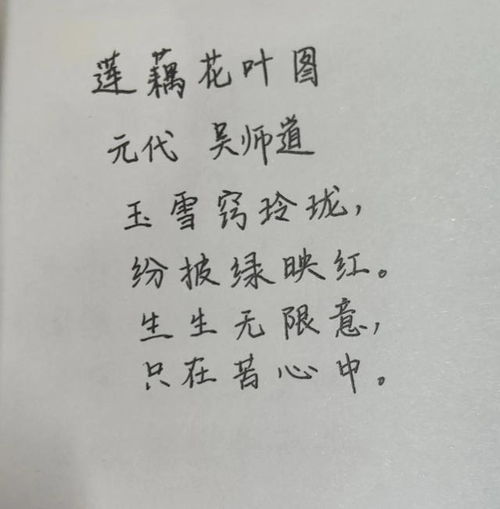 莲藕花叶图
元代 吴师道
玉雪窍玲珑,
纷披绿映红。
生生无限意,
只在苦心中。